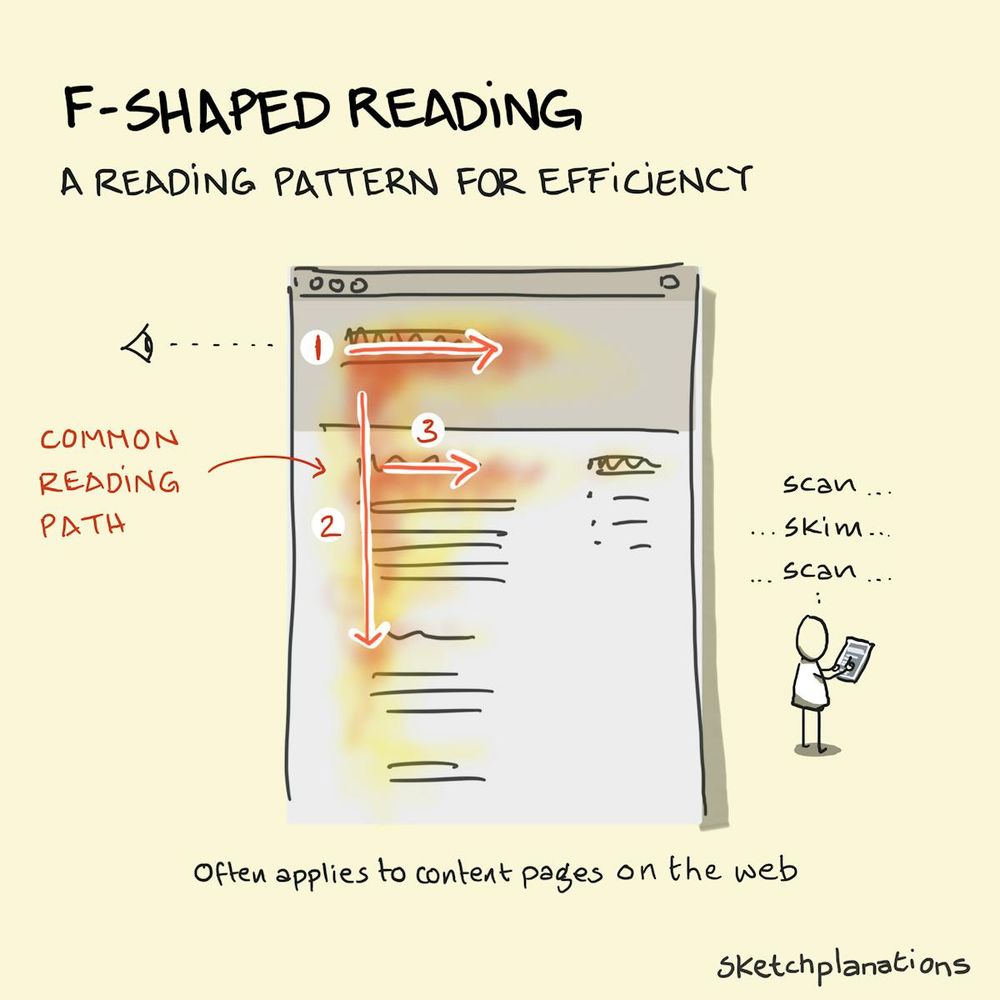 F-SHAPED READING
A READING PATTERN FOR EFFICIENCY
1
COMMON
READING
PATH
3
2
scan ...
... skim...
... scan ...
Often applies to content pages on the web
sketchplanations